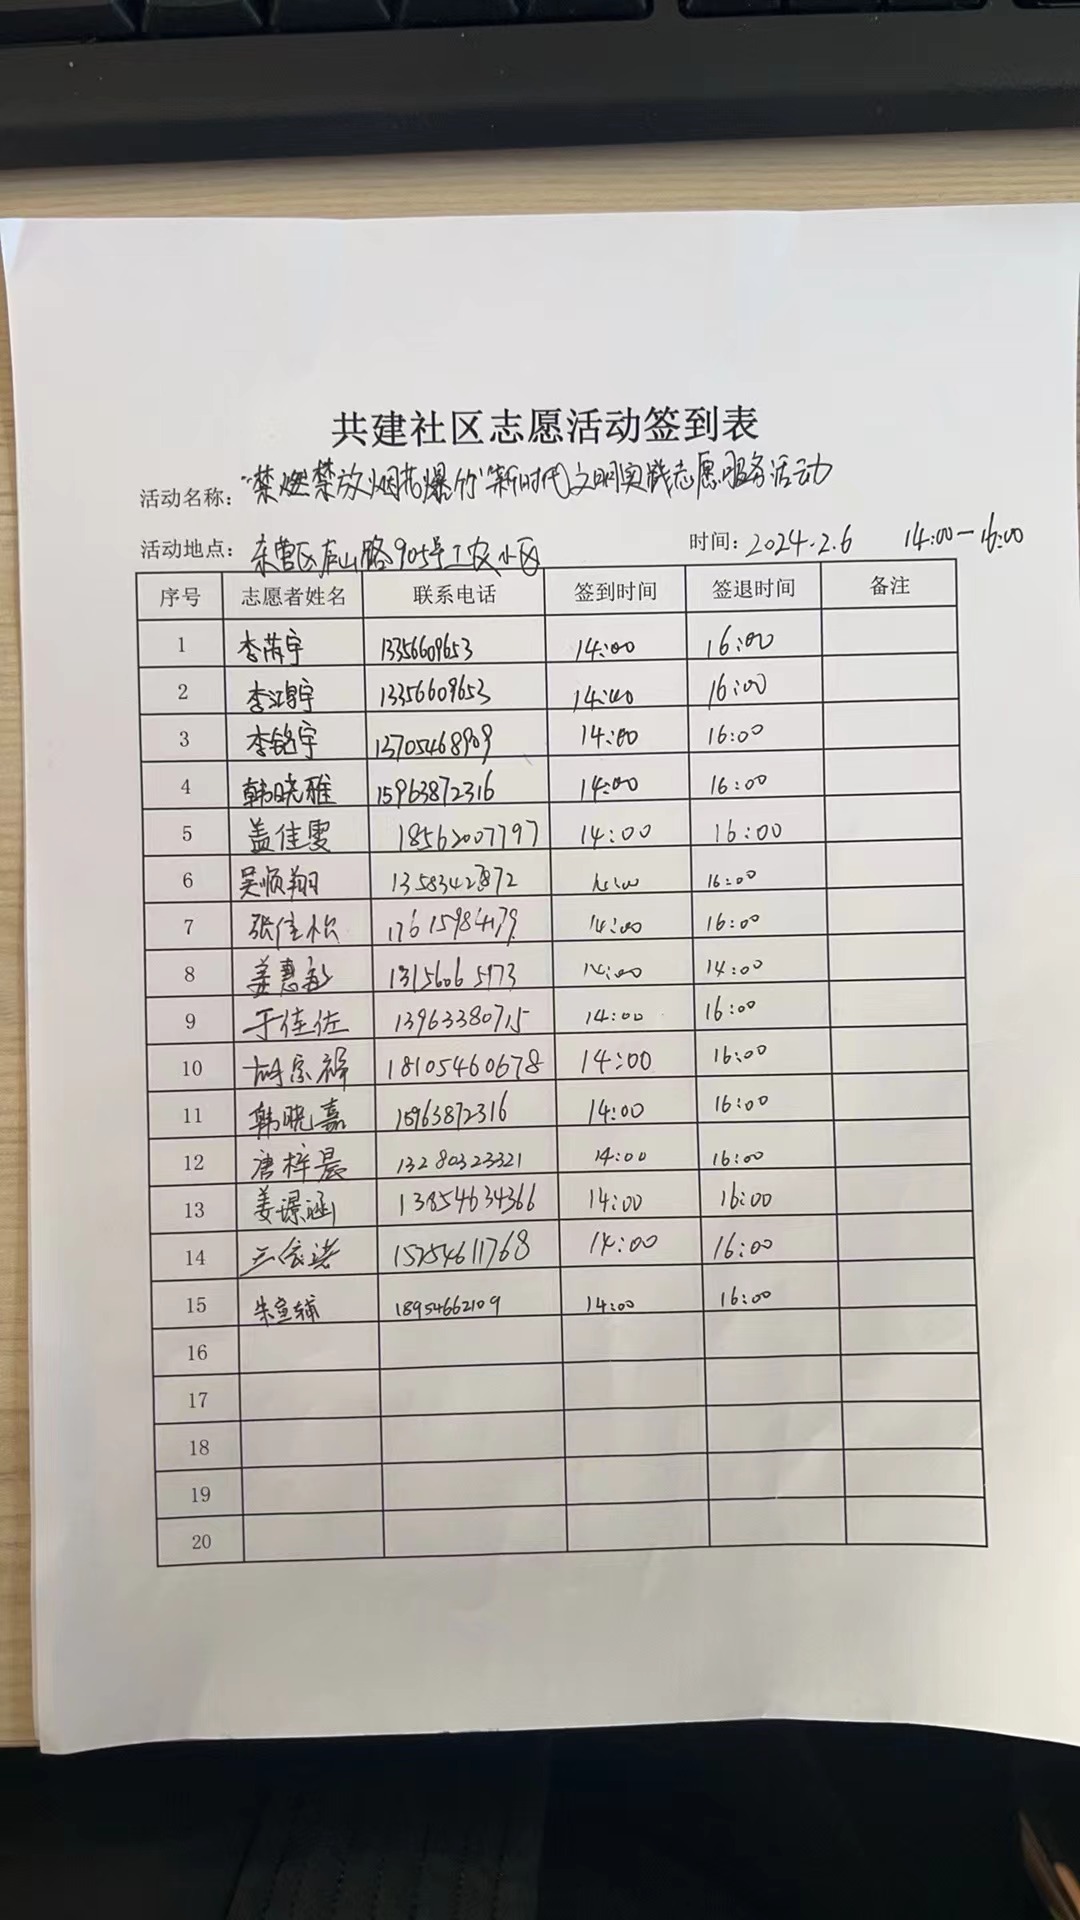 共建社区志愿活动签到表
活动名称："禁燃禁放烟花爆竹"新时代文明实践志愿服务活动
活动地点：东营区庐山路905号工农小区 时间：2024.2.6 14:00-16:00
序号 志愿者姓名 联系电话 签到时间 签退时间 备注
1 李芮宇 13356609653 14:00 16:00
2 李鸿宇 13356609653 14:00 16:00
3 李铭宇 13705468909 14:00 16:00
4 韩晓雅 15963872316 14:00 16:00
5 盖佳雯 18562007797 14:00 16:00
6 吴顺翔 14:00 16:00
7 张佳怡 17615984179 14:00 16:00
8 姜惠 14:00 14:00
9 于佳佐 13963380715 14:00 16:00
10 胡宗 18105460678 14:00 16:00
11 韩晓嘉 15963872316 14:00 16:00
12 唐梓晨 13280323321 14:00 16:00
13 姜璟涵 13854634366 14:00 16:00
14 15254611768 14:00 16:00
15 朱 18954662109 14:00 16:00
16
17
18
19
20